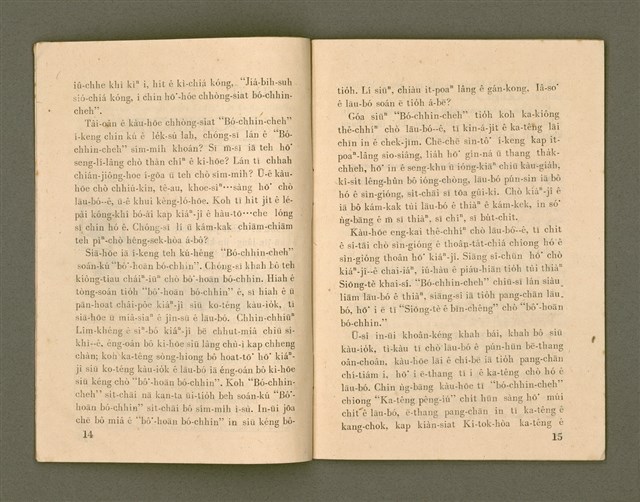 iû-chhe khì kìⁿ i, hit ê kì-chiá kóng, "Jiá-bih-suh
sió-chiá kóng, i chin hó͘-hō chhòng-siat bô-chhin-
cheh".
Tâi-oân ê kàu-hōe chhòng-siat "Bó-chhin-cheh"
í-keng chin kú ê le̍k-sú lah, chóng-sī lán ê "Bó-
chhin-cheh" sím-mi̍h khoán? Sī m̄-sī iā teh hō͘
seng-lí-lâng chò thàn chîⁿ ê ki-hōe? Lán tī chhah
chián-jiông-hoe í-gōa ū teh chò sím-mi̍h? Ū-ê kàu-
hōe chò chhiú-kin, tê-au, khoe-sìⁿ···sàng hō͘ chò
lāu-bó--ê, ū-ê khui kèng-ló-hōe. Koh tī hit ji̍t ê lé-
pài kóng-khí bó-ài kap kiáⁿ-jî ê hàu-tō···che lóng
sī chin hó ê. Chóng-sī lí ū kám-kak chiām-chiām
teh pìⁿ-chò hêng-sek-hòa á-bô?
Siā-hōe iā í-keng teh kù-hêng "Bó-chhin-cheh"
soán-kú "bô͘-hoān bó-chhin". Chóng-sī khah bô teh
kióng-tiau chāiⁿ-iūⁿ chò bô͘-hoān bó-chhin. Hiah ê
tòng-soán tio̍h "bô͘-hoān bó-chhin" ê, sī hiah ê ū
pān-hoat chāi-pôe kiáⁿ-jî siū ko-téng kàu-io̍k, tī
siā-hōe ū miâ-siaⁿ ê jîn-sū ê lāu-bó. Chhin-chhiūⁿ
Lîm-khêng ê sìⁿ-bō kiáⁿ-jî bē chhut-miâ chiū sí-
khì--ê, éng-oán bô ki-hōe siū lâng chù-ì kap chheng
chàn; koh ka-têng sòng-hiong bô hoat-tō͘ hō͘ kiáⁿ-
jî siū ko-téng kàu-io̍k ê lāu-bó iā éng-oán bô ki-hōe
siū kéng chò "bô͘-hoān bó-chhin". Koh "Bó-chhin-
cheh" si̍t-chāi nā kan-ta ūi-tio̍h beh soán-kú "Bô͘-
hoān bó-chhin" si̍t-chāi bô sím-mi̍h ì-sù. In-ūi jōa
chē bô miâ ê "bô͘-hoān bó-chhin" in siū kéng bô-
14
tio̍h. Lí siūⁿ, chiàu it-poaⁿ lâng ê gân-kong. Iâ-so͘
ê lāu-bó soán ē tio̍h á-bē?
Góa siūⁿ "Bó-chhin-cheh" tio̍h koh ka-kiông
thê-chhíⁿ chò lāu-bó--ê, tī kin-á-ji̍t ê ka-têng lāi
chīn in ê chek-jīm. Chē-chē sìn-tô͘ í-keng kap it-
poaⁿ-lâng sio-siâng, lia̍h hō͘ gín-ná ū thang tha̍k-
chheh, hō͘ in ê seng-khu ū ióng-kiāⁿ chiū kàu-gia̍h,
kî-si̍t lêng-hûn bô ióng-chòng, lāu-bó pún-sin iā bô
hó ê sìn-gióng, si̍t-chāi sī tōa gûi-ki. Chò kiáⁿ-jî ê
iā bô kám-kak tùi lāu-bó ê thiàⁿ ê kám-kek, in só͘
ǹg-bāng ê m̄ sī thiàⁿ, sī chîⁿ, sī bu̍t-chit.
Kàu-hōe eng-kai thê-chhíⁿ chò lāu-bó--ê, tī chit
ê sî-tāi chò sìn-gióng ê thoân-ta̍t-chiá chiong hó ê
sìn-gióng thoân hō͘ kiáⁿ-jî. Siāng sî-chūn hō͘ chò
kiáⁿ-jî--ê chai-iáⁿ, iû-hàu ê piáu-hiān tio̍h tùi thiàⁿ
Siōng-tè khai-sí. "Bó-chhin-cheh" chiū-sī lán siàu-
liām lāu-bó ê thiàⁿ, siāng-sî iā tio̍h pang-chān lāu-
bó, hō͘ i ē tī "Siōng-tè ê bīn-chêng" chò "bô͘-hoān
bó-chhin."
Ū-sî in-ūi khoân-kéng khah bái, khah bô siū
kàu-io̍k, tì-kàu tī chò lāu-bó ê pún-hūn bē-thang
oân-choân, kàu-hōe lāi ê chí-bē iā tio̍h pang-chān
chi-tiām i, hō͘ i ē-thang tī i ê ka-têng chò hó ê
lāu-bó. Chin ǹg-bāng kàu-hōe tī "bó-chhin-cheh"
chiong "Ka-têng pêng-iú" chit hūn sàng hō͘ múi
chi̍t ê lāu-bó, ē-thang pang-chān in tī ka-têng ê
kang-chok, kap kiàn-siat Ki-tok-hòa ka-têng ê
15